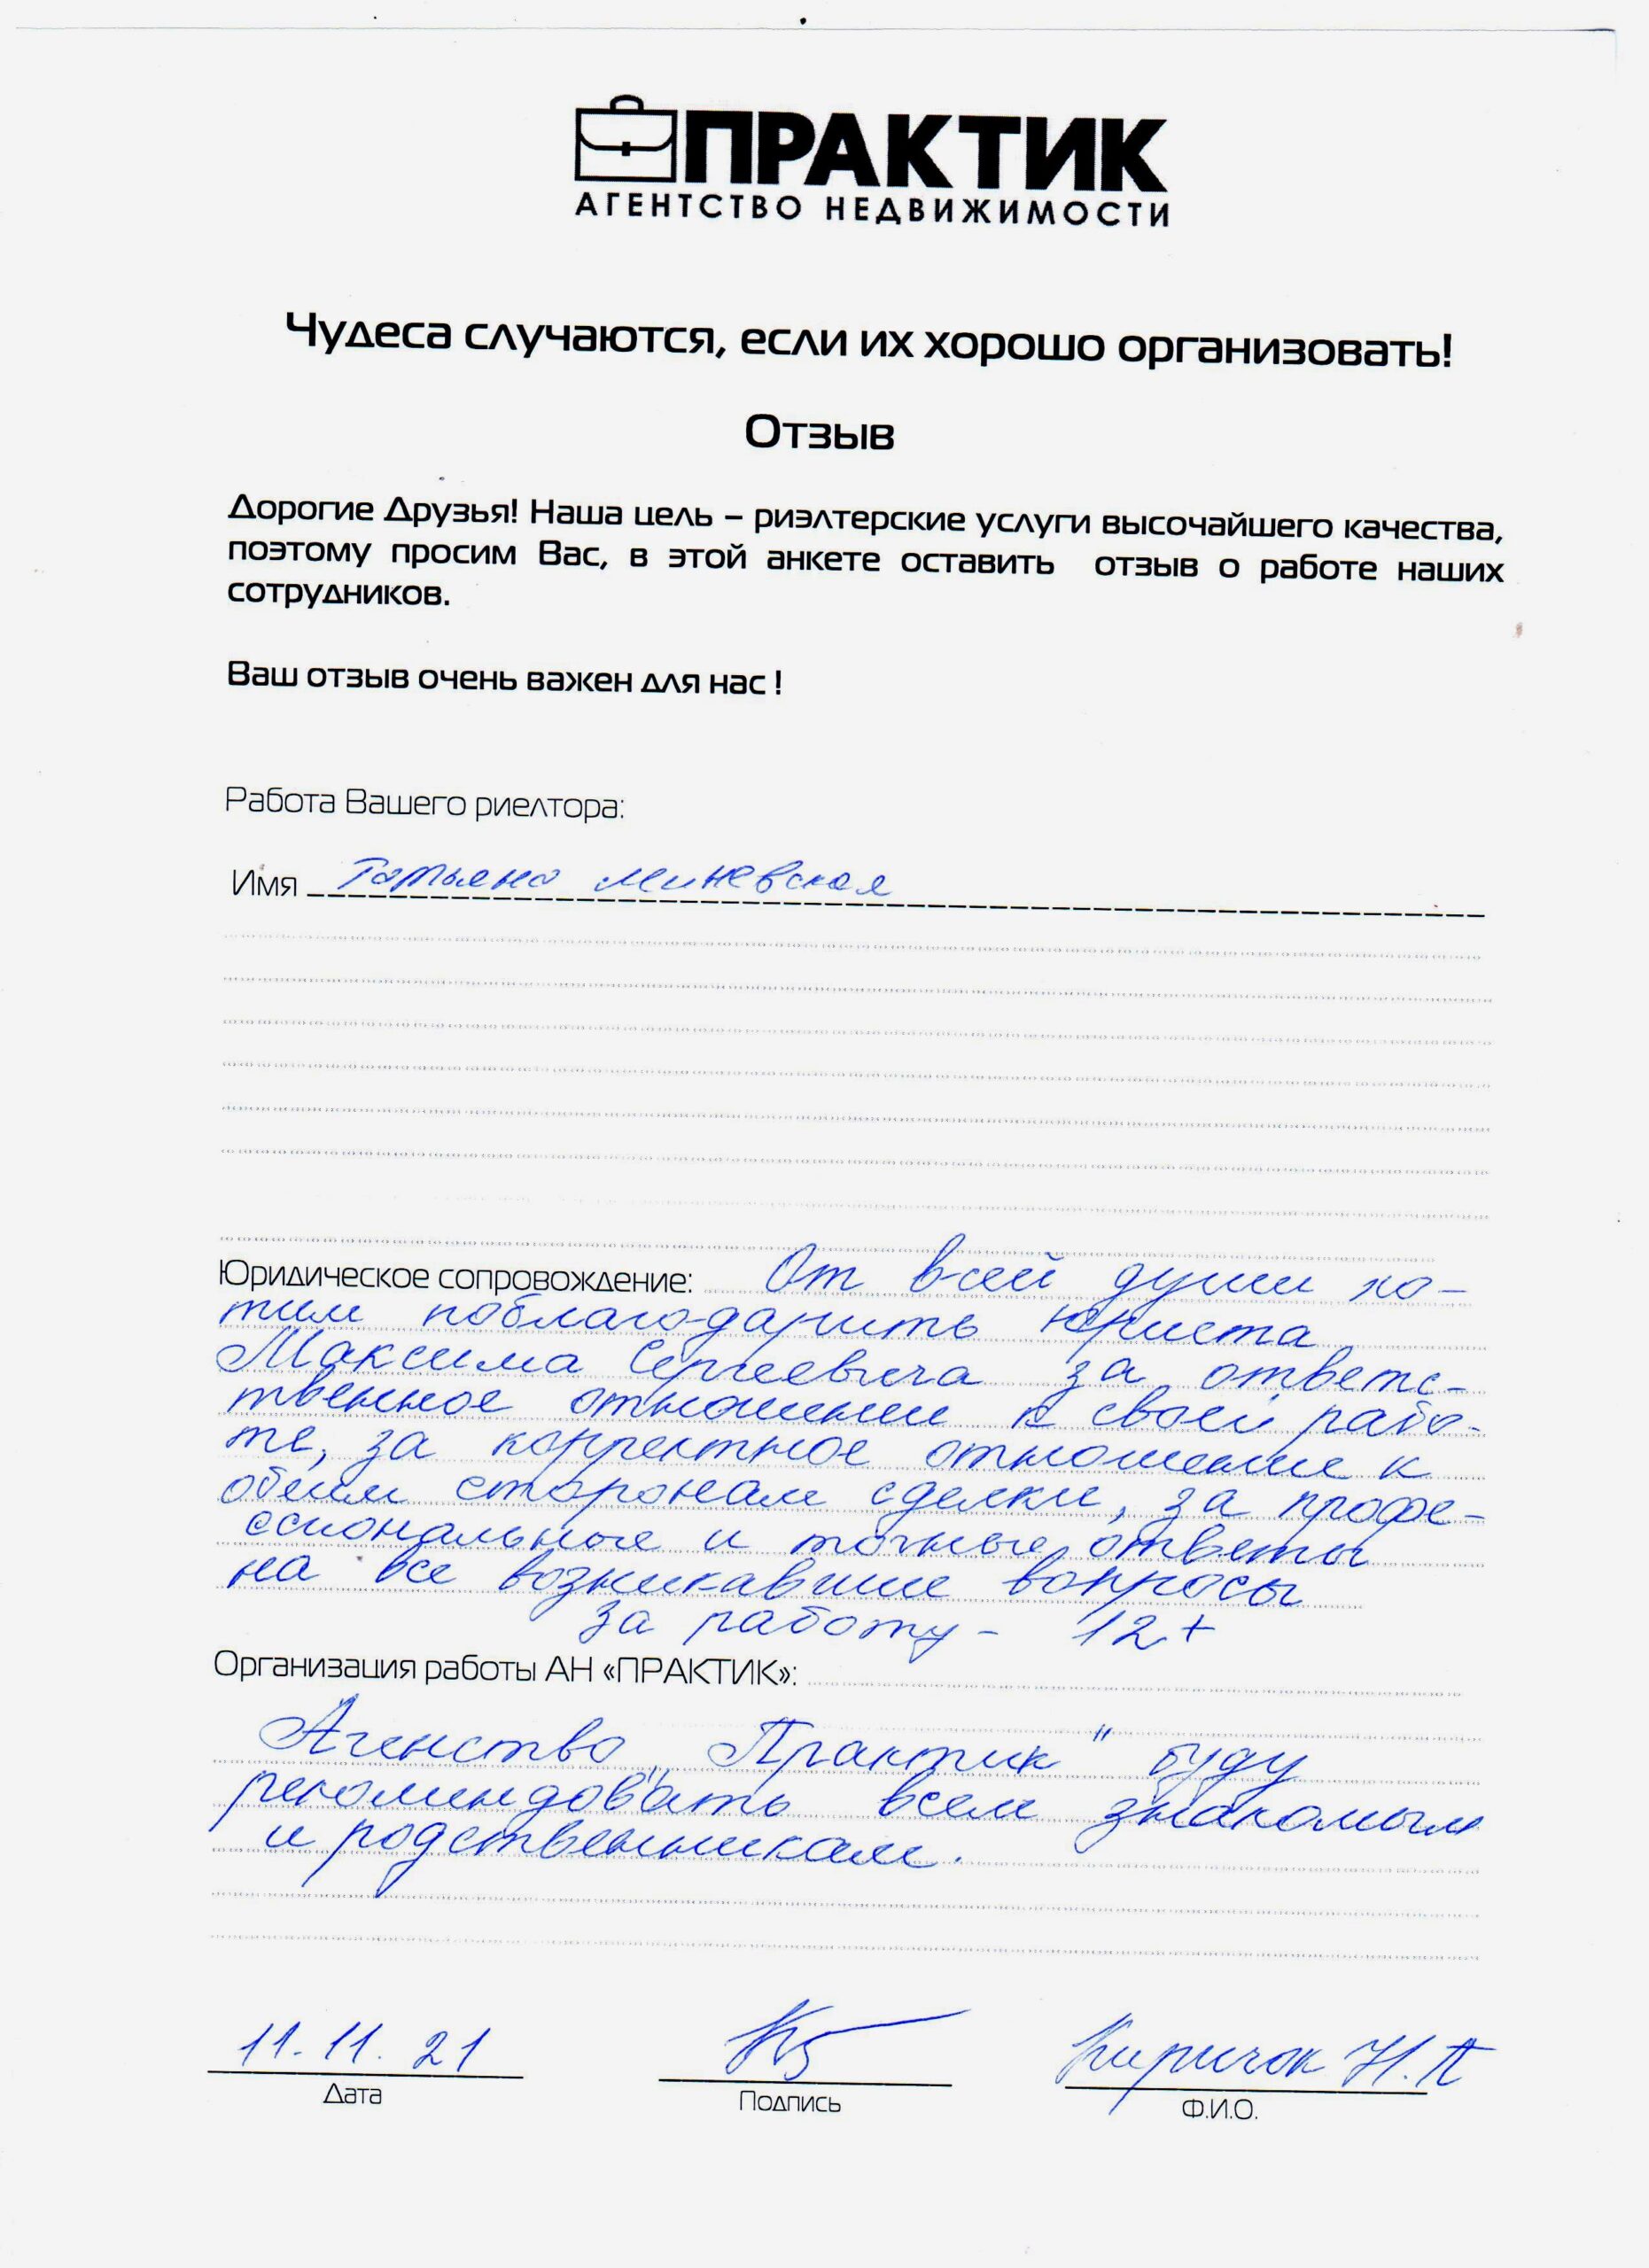 ПРАКТИК
АГЕНТСТВО НЕДВИЖИМОСТИ
Чудеса случаются, если их хорошо организовать!
Отзыв
Дорогие Друзья! Наша цель – риэлтерские услуги высочайшего качества,
поэтому просим Вас, в этой анкете оставить отзыв о работе наших
сотрудников.
Ваш отзыв очень важен для нас !
Работа Вашего риелтора:
Имя Татьяна Миневская
Юридическое сопровождение: От всей души хо-
тим поблагодарить юриста
Максима Сергеевича за ответс-
твенное отношении к своей рабо-
те, за корректное отношение к
обеим сторонам сделки, за профе-
ссиональные и точные ответы
на все возникавшие вопросы
за работу - 12+
Организация работы АН «ПРАКТИК»:
Агенство „Практик" буду
рекоминдовать всем знакомым
и родственникам.
11.11.21
Дата
Подпись
Киричок Н.П
Ф.И.О.